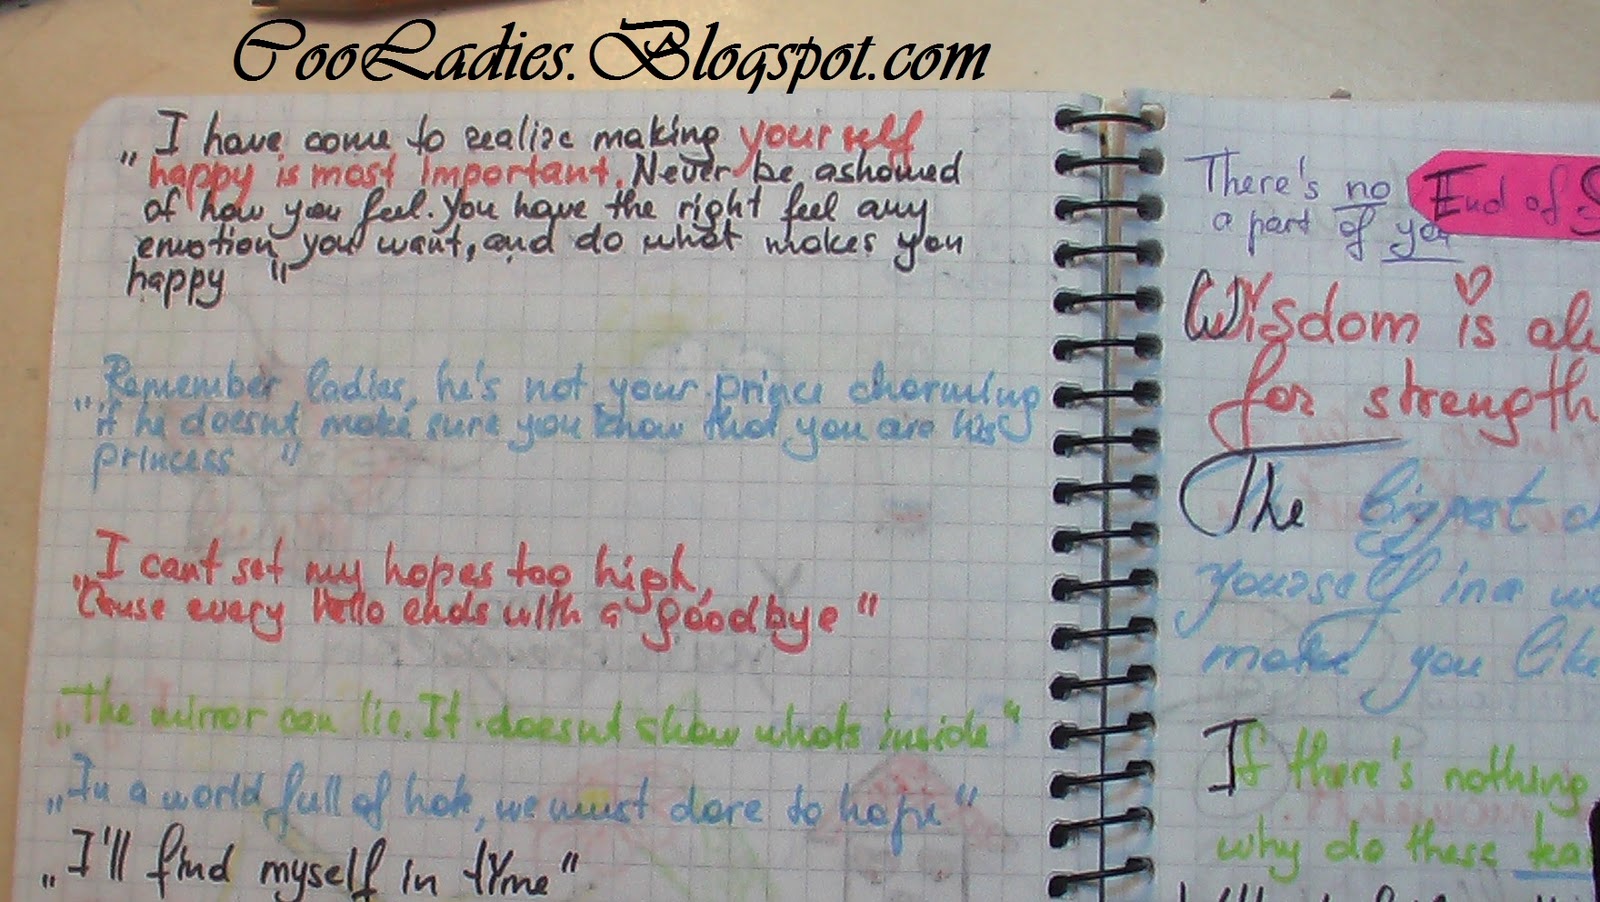 CooLadies.Blogspot.com
„I have come to realize making yourself
happy is most important. Never be ashamed
of how you feel. You have the right feel any
emotion you want, and do what makes you
happy "
„Remember ladies, he's not your prince charming
if he doesnt make sure you know that you are his
princess "
„I cant set my hopes too high,
'Cause every hello ends with a goodbye"
„The mirror can lie. It doesnt show whats inside"
„In a world full of hate, we must dare to hope"
„I'll find myself in tyme"
There's no End of S
a part of you
Wisdom is al
for strength
The biggest ch
yourself in a wo
make you like
If there's nothing
why do these tea